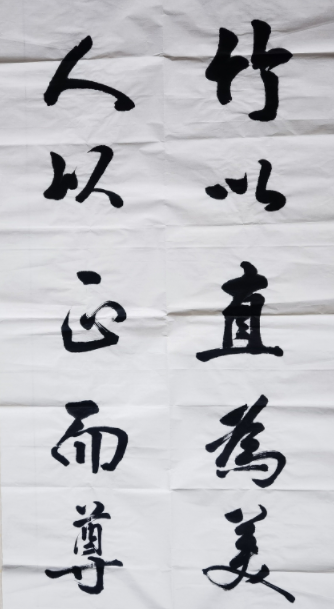 竹以直為美
人以正而尊